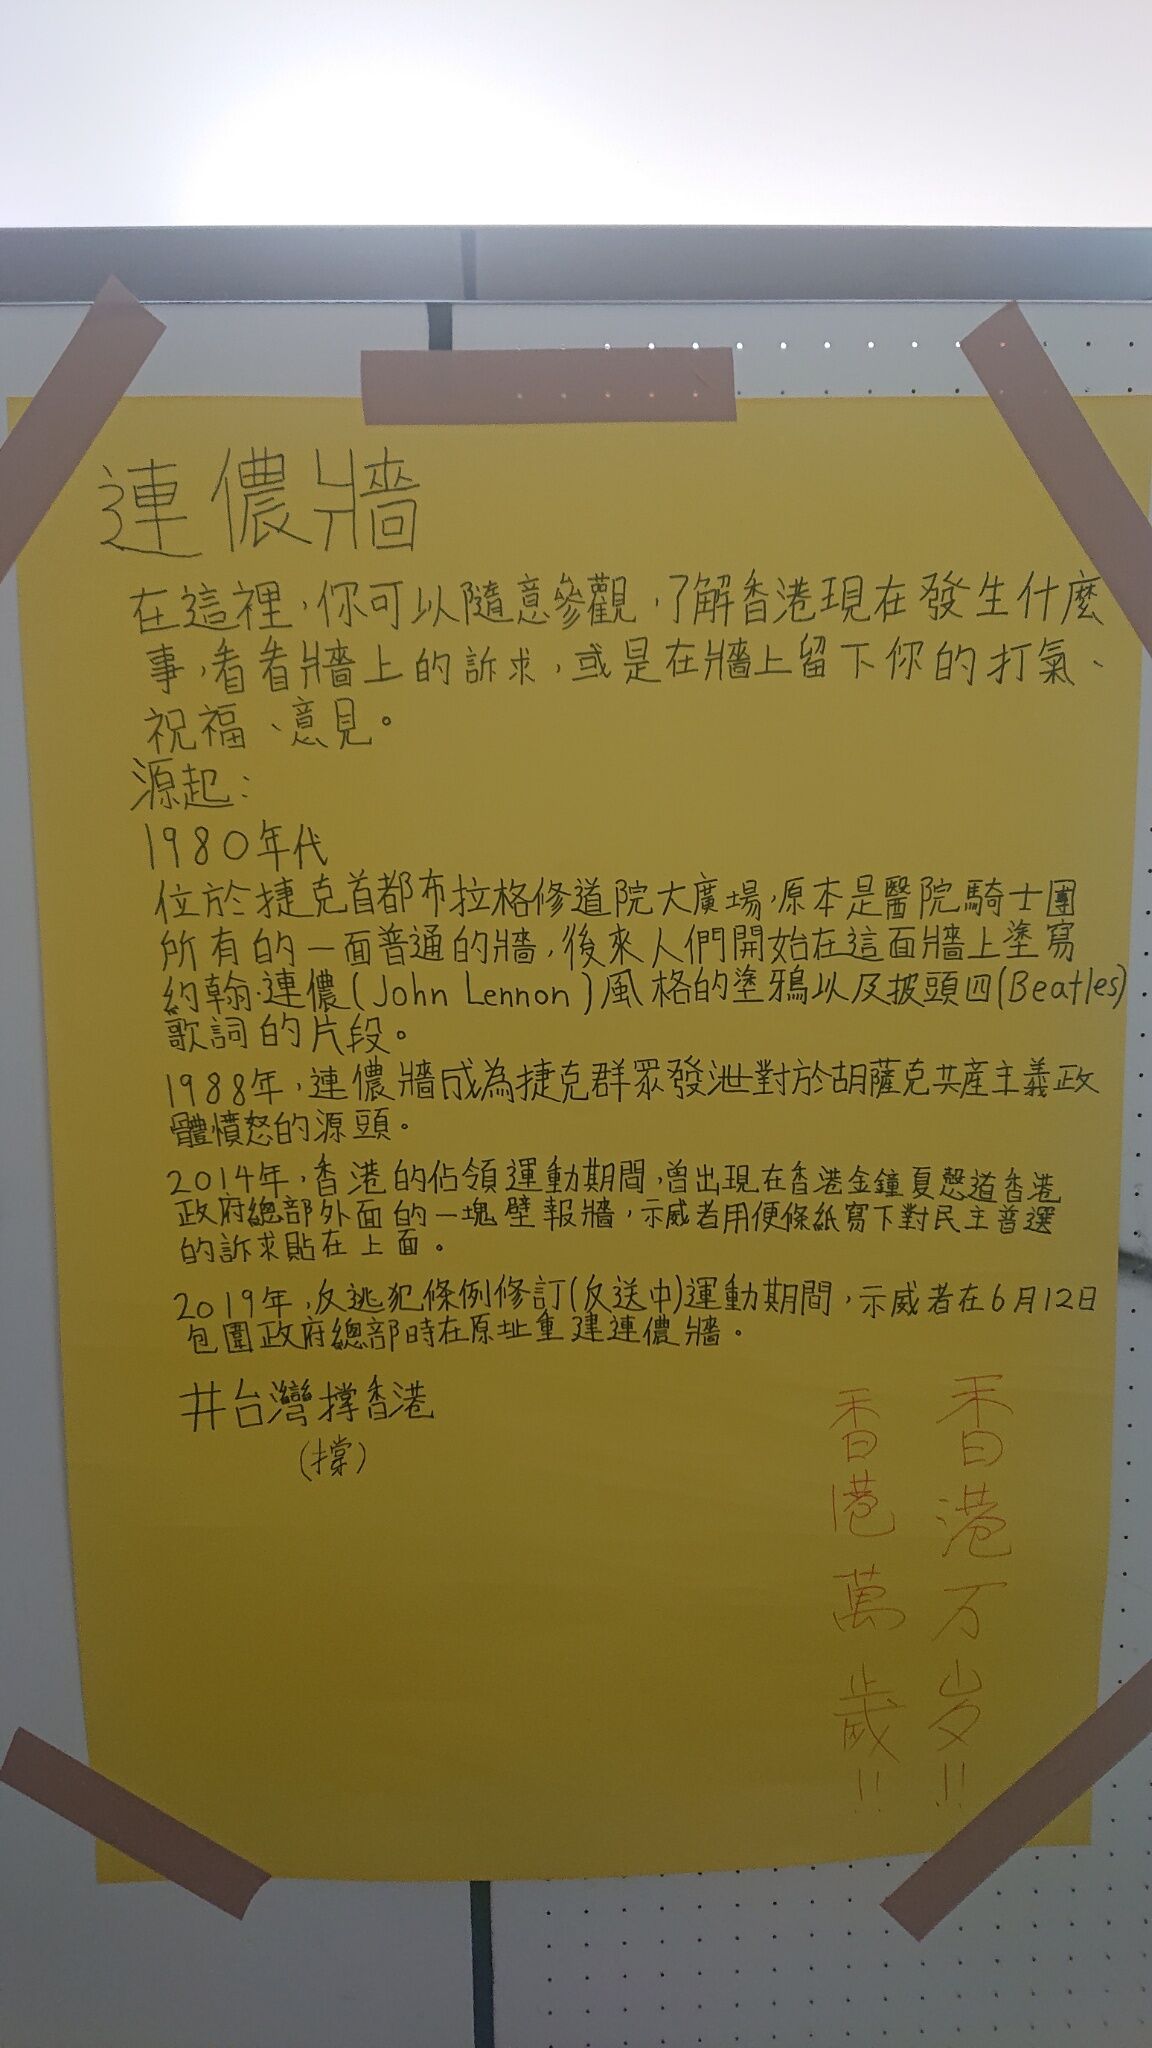 連儂牆
在這裡,你可以隨意參觀,了解香港現在發生什麼
事,看看牆上的訴求,或是在牆上留下你的打氣、
祝福、意見。
源起:
1980年代
位於捷克首都布拉格修道院大廣場,原本是醫院騎士團
所有的一面普通的牆,後來人們開始在這面牆上塗寫
約翰·連儂(John Lennon)風格的塗鴉以及披頭四(Beatles)
歌詞的片段。
1988年,連儂牆成為捷克群眾發泄對於胡薩克共產主義政
體憤怒的源頭。
2014年,香港的佔領運動期間,曾出現在香港金鐘夏慤道香港
政府總部外面的一塊壁報牆,示威者用便條紙寫下對民主普選
的訴求貼在上面。
2019年,反逃犯條例修訂(反送中)運動期間,示威者在6月12日
包圍政府總部時在原址重建連儂牆。
#台灣撐香港
(撑)
香港万岁!!
香港萬歲!!